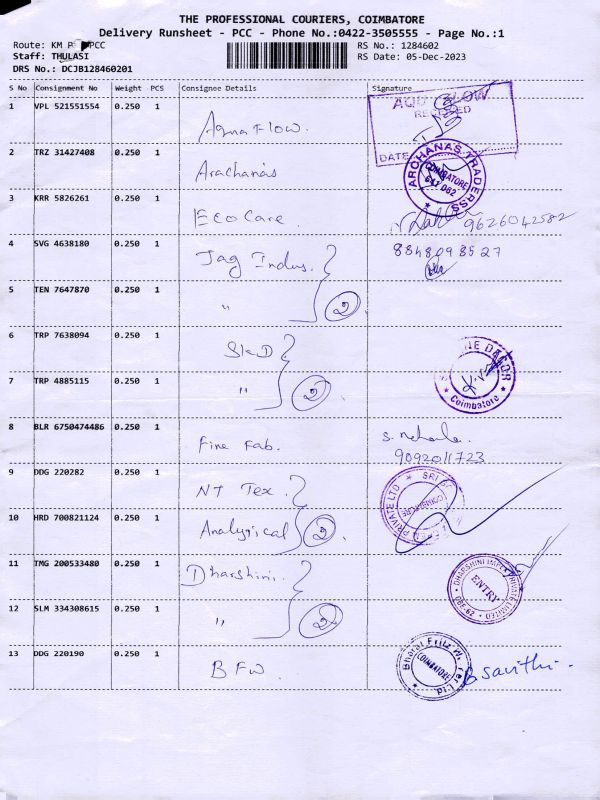 THE PROFESSIONAL COURIERS, COIMBATORE
Delivery Runsheet - PCC - Phone No.:0422-3505555 - Page No.:1
Route: KM P PCC
RS No.: 1284602
Staff: THULASI
RS Date: 05-Dec-2023
DRS No.: DCJB128460201
S No Consignment No Weight PCS Consignee Details Signature
1 VPL 521551554 0.250 1 Aqua Flow.
AQUA FLOW
RECEIVED
DATE
2 TRZ 31427408 0.250 1 Arachanas
ARCHANAS TRADERSS
COIMBATORE
641 062
3 KRR 5826261 0.250 1 Eco Care. 9626042582
4 SVG 4638180 0.250 1 Jag Indus. 8848098527
5 TEN 7647870 0.250 1 " 2
6 TRP 7638094 0.250 1 SKD
7 TRP 4885115 0.250 1 " 2
DACOR
Coimbatore
8 BLR 6750474486 0.250 1 Fine Fab.
9092011723
9 DDG 220282 0.250 1 NT Tex.
10 HRD 700821124 0.250 1 Analytical 2
SRI
PRIVATE LTD
11 TMG 200533480 0.250 1 Dharshini.
12 SLM 334308615 0.250 1 " 2
DHARSHINI IMPEX PRIVATE LIMITED
ENTRY
CBE-62
13 DDG 220190 0.250 1 BFW
Bharat Fritz Werner Ltd
COIMBATORE
B Savithi